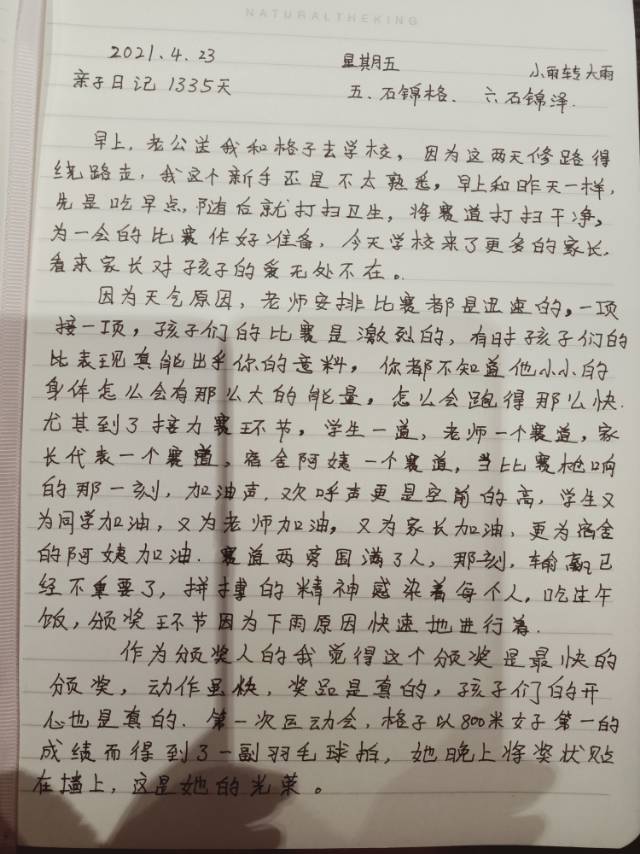 NATURALTHEKING
2021.4.23 星期五 小雨转大雨
亲子日记 1335天 五.石锦格. 六石锦泽.
早上,老公送我和格子去学校,因为这两天修路得
绕路走,我这个新手还是不太熟悉,早上和昨天一样,
先是吃早点,随后就打扫卫生,将赛道打扫干净,
为一会的比赛作好准备,今天学校来了更多的家长,
看来家长对孩子的爱无处不在。
因为天气原因,老师安排比赛都是迅速的,一项
接一项,孩子们的比赛是激烈的,有时孩子们的
比表现真能出乎你的意料,你都不知道他小小的
身体怎么会有那么大的能量,怎么会跑得那么快.
尤其到了接力赛环节,学生一道,老师一个赛道,家
长代表一个赛道,宿舍阿姨一个赛道,当比赛枪响
的那一刻,加油声,欢呼声更是空前的高,学生又
为同学加油,又为老师加油,又为家长加油,更为宿舍
的阿姨加油.赛道两旁围满了人,那刻,输赢已
经不重要了,拼搏的精神感染着每个人,吃过午
饭,颁奖环节因为下雨原因快速地进行着.
作为颁奖人的我觉得这个颁奖是最快的
颁奖,动作虽快,奖品是真的,孩子们的开
心也是真的.第一次运动会,格子以800米女子第一的
成绩而得到了一副羽毛球拍,她晚上将奖状贴
在墙上,这是她的光荣。